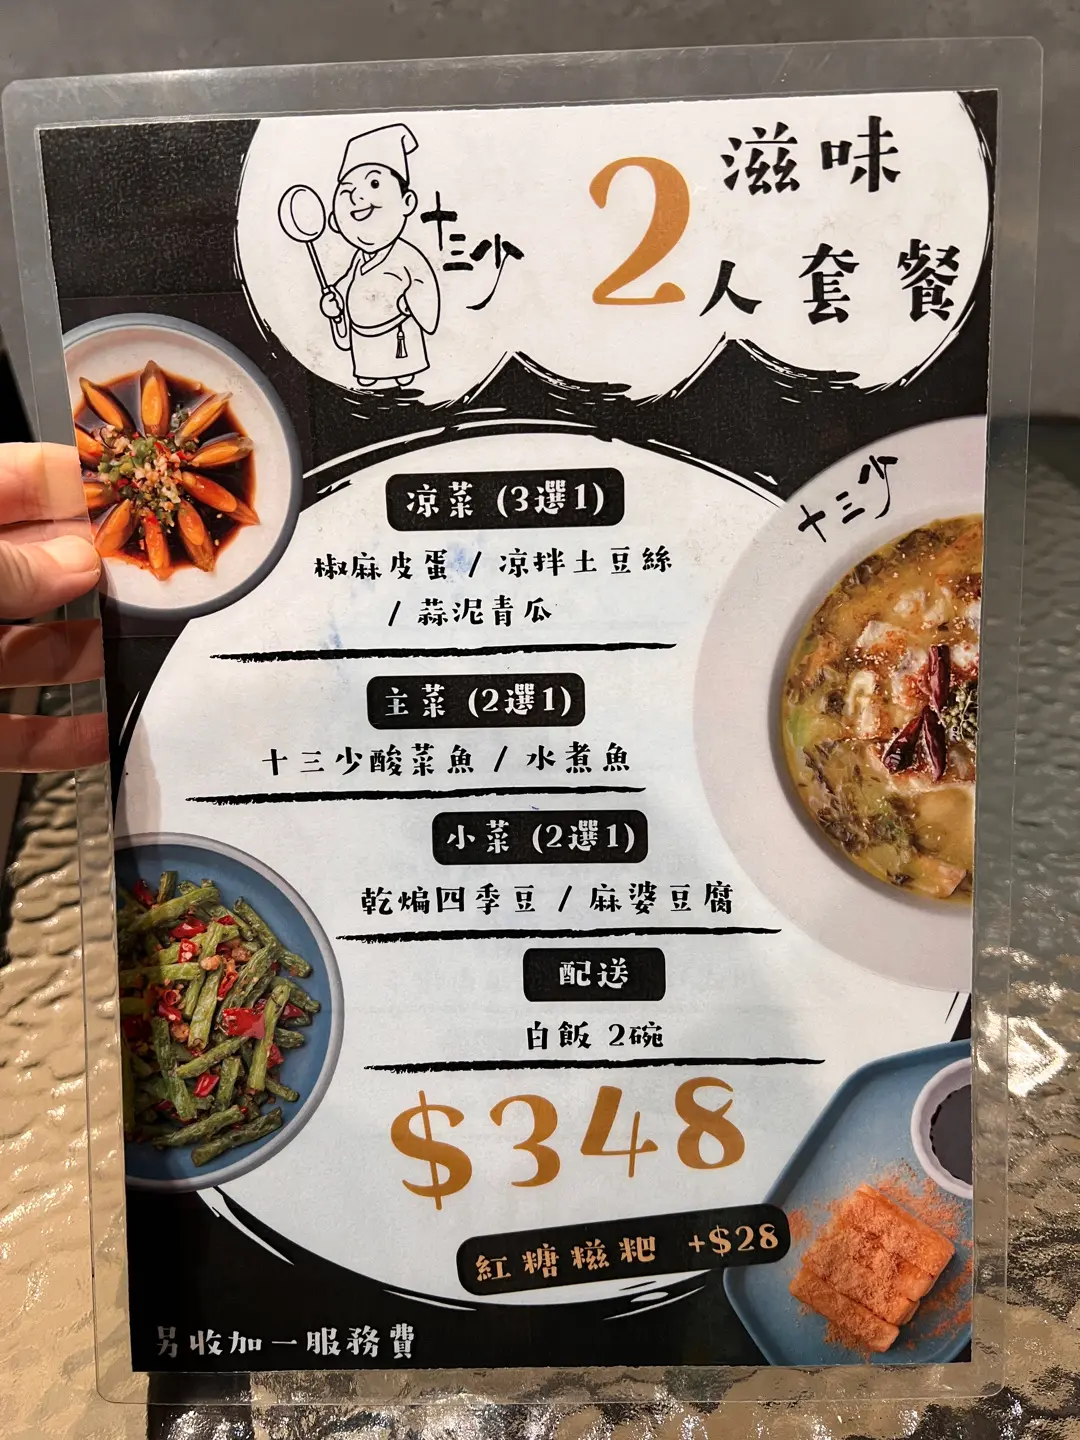 十三少
滋味
2人套餐
十三少
凉菜 (3選1)
椒麻皮蛋 / 凉拌土豆絲
/ 蒜泥青瓜
主菜 (2選1)
十三少酸菜魚 / 水煮魚
小菜 (2選1)
乾煸四季豆 / 麻婆豆腐
配送
白飯 2碗
$348
紅糖糍粑 +$28
另收加一服務費